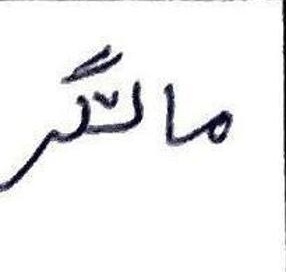 مالشگر